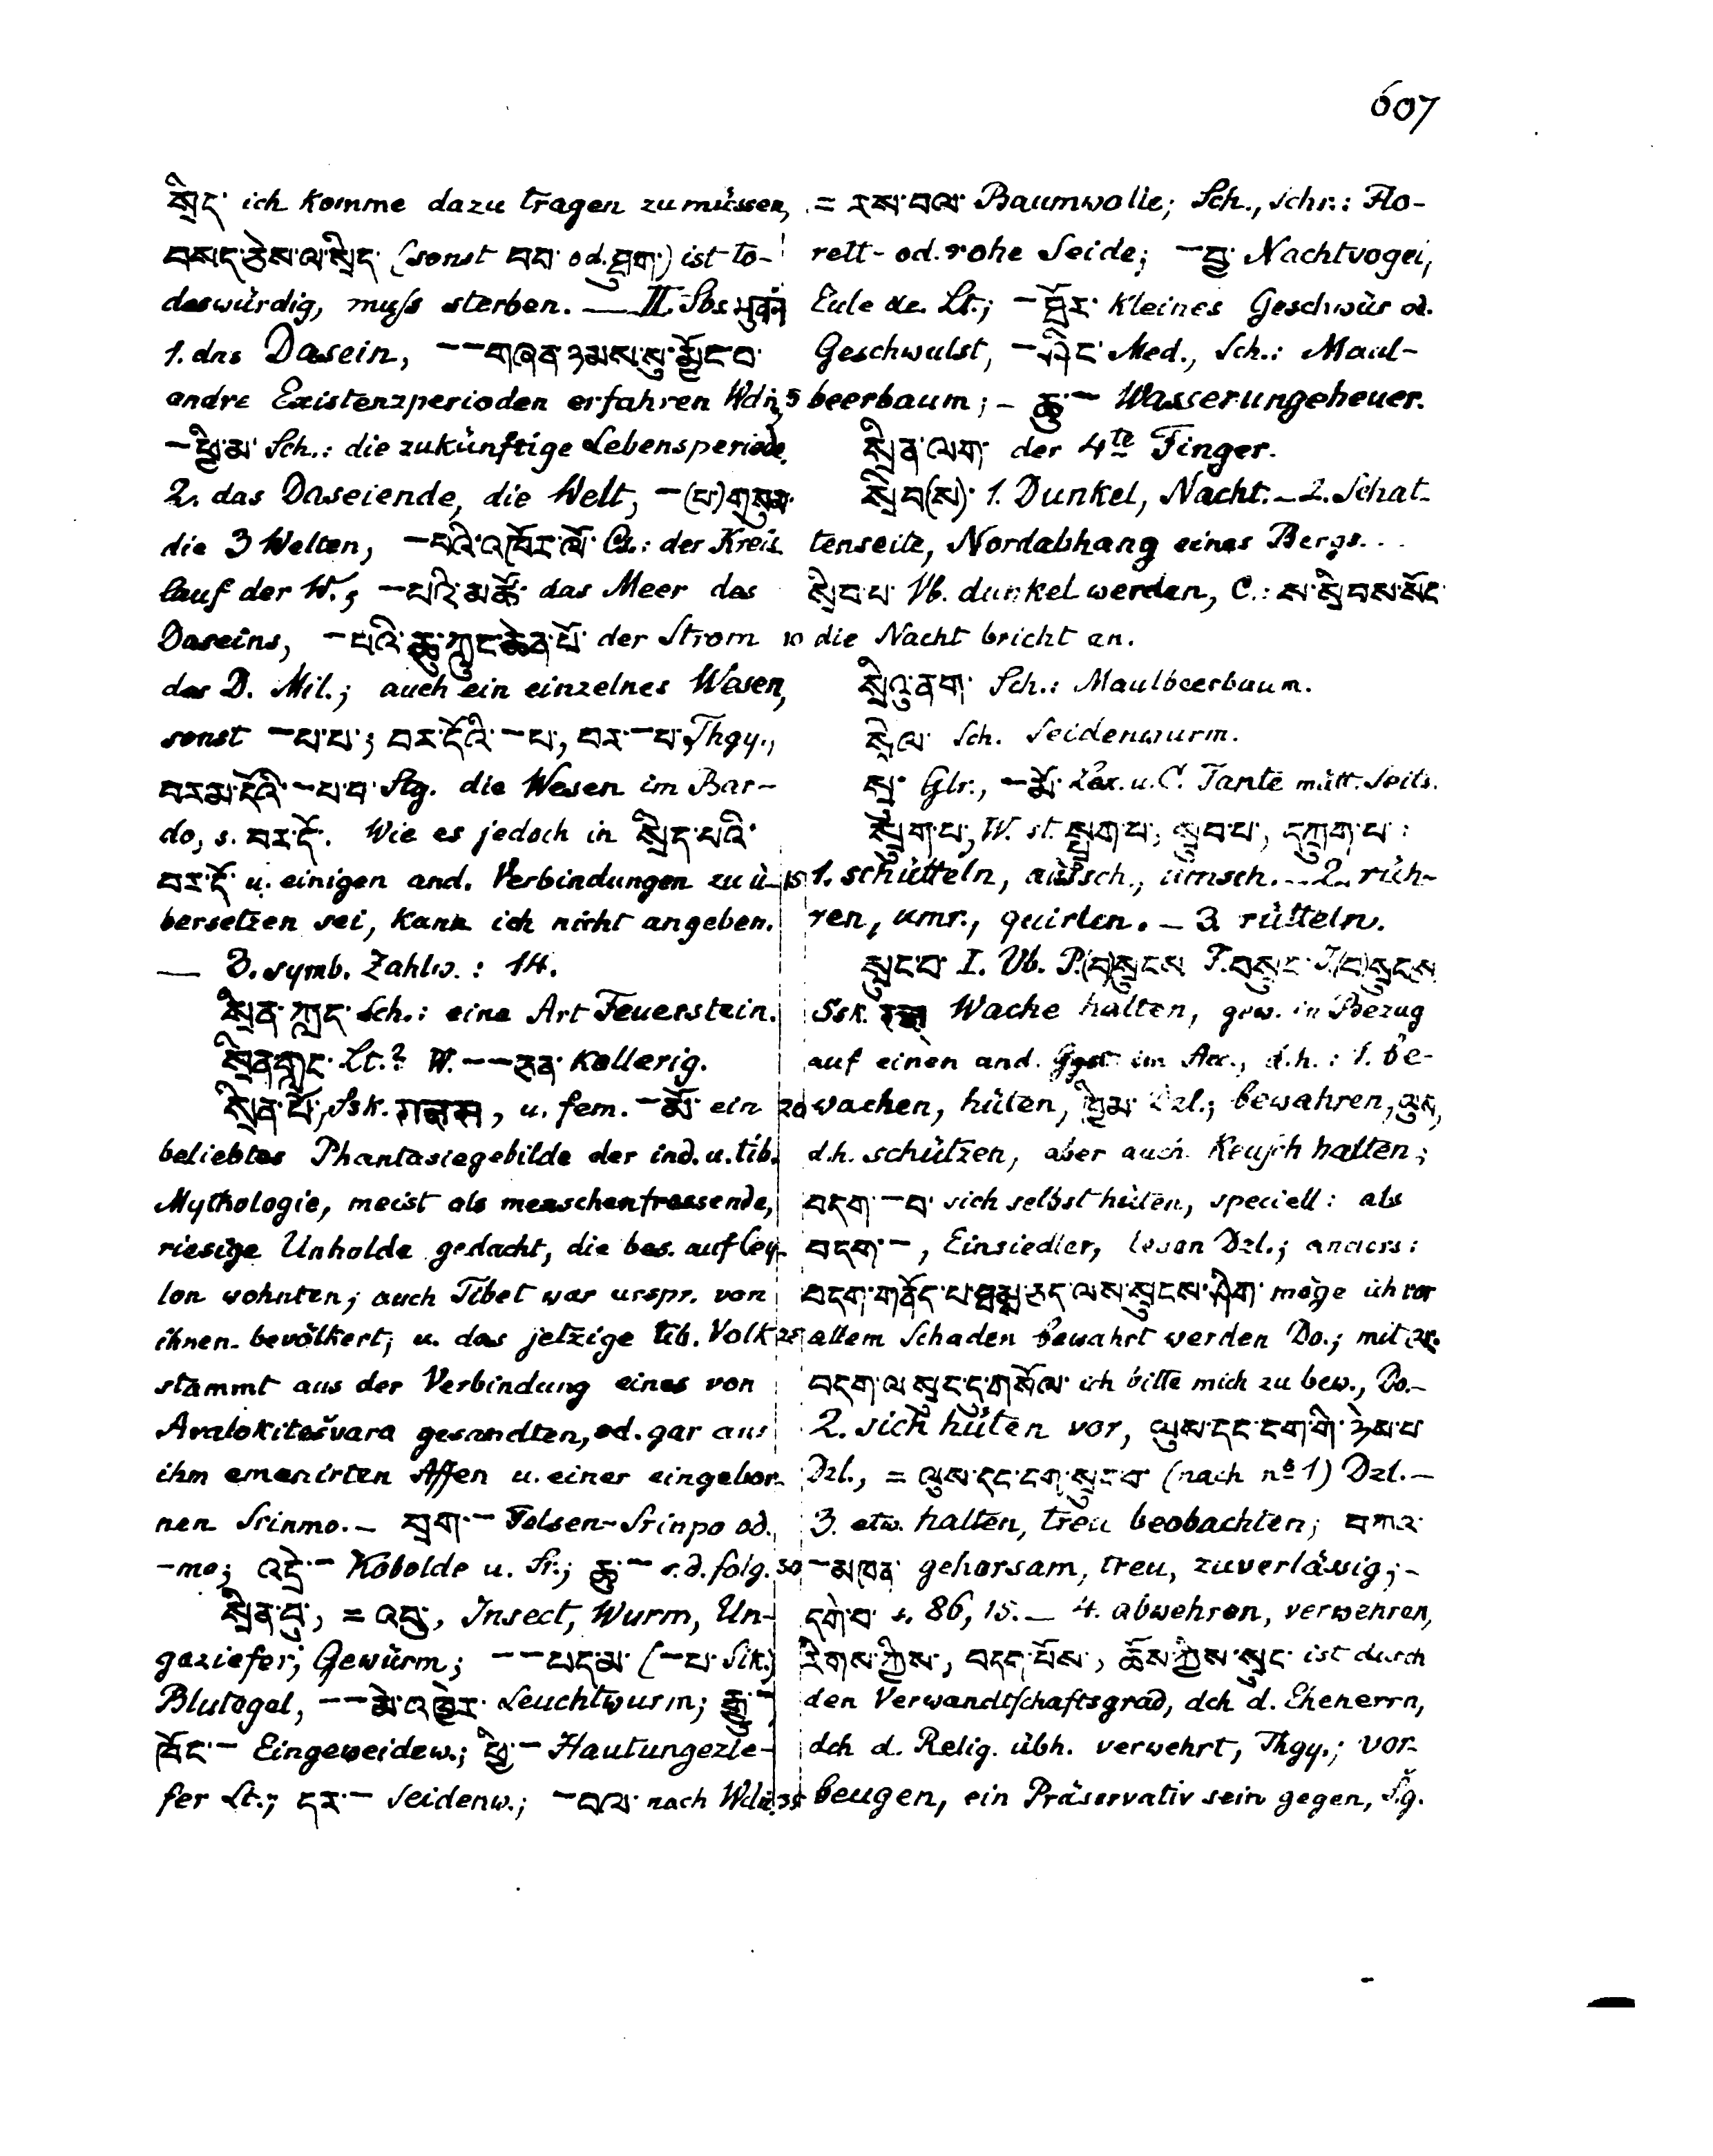 607
སྲིད་ ich komme dazu tragen zu müssen,
བསད་རྩིས་ལ་སྲིད་ (sonst བབ་ od. ཐུག་) ist to-
deswürdig, muss sterben. — II. Sbs.
1. das Dasein, –– གཞན་ཉམས་སུ་མྱོང་བ་
andre Existenzperioden erfahren Wdn,
– ཕྱི་མ་ Sch.: die zukünftige Lebensperiode.
2. das Daseiende, die Welt, – (པ་)གསུམ་
die 3 Welten, – པའི་འཁོར་ལོ་ Cs.: der Kreis
lauf der W., – པའི་མཚོ་ das Meer des
Daseins, – པའི་ཆུ་ཀླུང་ཆེན་པོ་ der Strom
des D. Mil.; auch ein einzelnes Wesen,
sonst – པ་པ་; བར་དོའི་ – པ་, བར་ – པ་ Thgy.,
བརམ་དོའི་ – པ་བ་ Stg. die Wesen im Bar-
do, s. བར་དོ་. Wie es jedoch in སྲིད་པའི་
བར་དོ་ u. einigen and. Verbindungen zu ü-
bersetzen sei, kann ich nicht angeben.
— 3. symb. Zahlw.: 14.
སྲིན་ཀླད་ Sch.: eine Art Feuerstein.
སྲིན་ Lt.? W. –– ཅན་ kollerig.
སྲིན་པོ་, Ssk. , u. fem. – མོ་ ein
beliebtes Phantasiegebilde der ind. u. tib.
Mythologie, meist als menschenfressende,
riesige Unholde gedacht, die bes. auf Cey-
lon wohnten; auch Tibet war urspr. von
ihnen bevölkert; u. das jetzige tib. Volk
stammt aus der Verbindung eines von
Avalokitešvara gesandten, od. gar aus
ihm emanirten Affen u. einer eingebor-
nen Srinmo. – བྲག་ – Felsen-Srinpo od.
-mo; འདྲེ་ – Kobolde u. Sr.; ཆུ་ – s. d. folg.
སྲིན་བུ་, = འབུ་, Insect, Wurm, Un-
geziefer, Gewürm; –– པད་མ་ (– པ་ Sik.)
Blutegel, –– མེ་འཁྱེར་ Leuchtwurm; རྒྱུ་ –,
ཁོང་ – Eingeweidew.; ཕྱི་ – Hautungezie-
fer Lt.; དར་ – Seidenw.; – བལ་ nach Wdn.
= རས་བལ་ Baumwolle; Sch., Schr.: Flo-
rett- od. rohe Seide; – བྱ་ Nachtvogel,
Eule Lt.; – ཐོར་ kleines Geschwür od.
Geschwulst, – ཤིང་ Med., Sch.: Maul-
5 beerbaum; – ཆུ་ – Wasserungeheuer.
སྲིན་ལག་ der 4te Finger.
སྲིབ(ས)་ 1. Dunkel, Nacht. – 2. Schat-
tenseite, Nordabhang eines Bergs. ..
སྲིབ་པ་ Vb. dunkel werden, C.: ས་སྲིབས་སོང་
10 die Nacht bricht an.
སྲིའུ་ནག་ Sch.: Maulbeerbaum.
སྲིལ་ Sch. Seidenwurm.
སྲུ་ Glr., – མོ་ Lex. u. C. Tante mütt. Seits.
སྲུག་པ་, W. st. སྤྲུག་པ་, སྲུབ་པ་, དཀྲུག་པ་:
15 1. schütteln, aufsch., umsch. – 2. rüh-
ren, umr., quirlen. – 3. rütteln.
སྲུང་བ་ I. Vb. P. (བ)སྲུངས F. བསྲུང་ J. (བ)སྲུངས
Ssk. Wache halten, gew. in Bezug
auf einen and. Ggst im Acc., d.h.: 1. be-
20 wachen, hüten, ཁྱིམ་ Dzl.; bewahren, ལུས་,
d.h. schützen, aber auch keusch halten;
བདག་ – བ་ sich selbst hüten, speciell: als
བདག་ –, Einsiedler, leben Dzl.; anders:
བདག་གནོད་པ་ཐམས་ཅད་ལས་སྲུངས་ཤིག་ möge ich vor
25 allem Schaden bewahrt werden Do.; mit
བདག་ལ་སྲུང་དུ་གསོལ་ ich bitte mich zu bew., Do. –
2. sich hüten vor, ལུས་དང་ངག་གི་ཉེས་པ
Dzl., = ལུས་དང་ངག་སྲུང་བ་ (nach no 1) Dzl. –
3. etw. halten, treu beobachten; བཀའ་
30 – མཁན་ gehorsam, treu, zuverlässig; –
དགེ་བ་ s. 86, 15. – 4. abwehren, verwehren,
རིགས་ཀྱིས་, བདག་པོས་, ཆོས་ཀྱིས་སྲུང་ ist durch
den Verwandtschaftsgrad, dch d. Eheherrn,
dch d. Relig. übh. verwehrt, Thgy.; vor-
35 beugen, ein Präservativ sein gegen, S̆g.